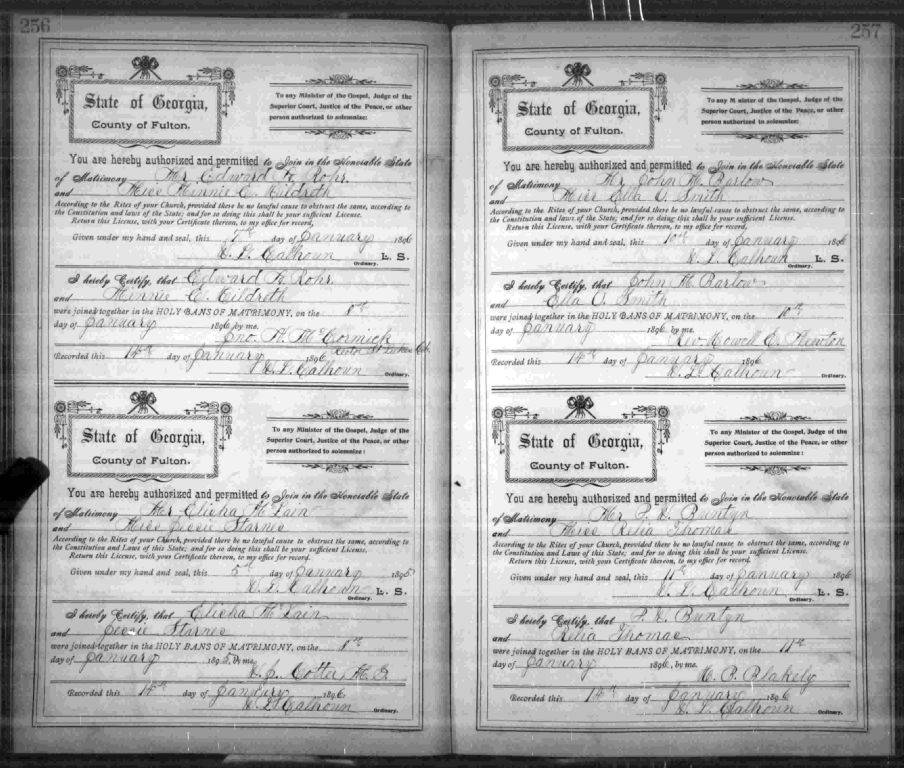 256
State of Georgia,
County of Fulton.
To any Minister of the Gospel, Judge of the
Superior Court, Justice of the Peace, or other
person authorized to solemnize:
You are hereby authorized and permitted to Join in the Honorable State
of Matrimony Mr Edward K Rohr.
and Miss Minnie C. Hildreth
According to the Rites of your Church, provided there be no lawful cause to obstruct the same, according to
the Constitution and laws of this State; and for so doing this shall be your sufficient License.
Return this License, with your Certificate thereon, to my office for record,
Given under my hand and seal, this 7th day of January 1896
W. L. Calhoun L. S.
Ordinary.
I hereby Certify, that Edward K Rohr.
and Minnie C. Hildreth
were joined together in the HOLY BANS OF MATRIMONY, on the 8th
day of January 1896 by me.
Jno. N. McCormick
Rector St Lukes Ch.
Recorded this 14th day of January 1896
W. L. Calhoun Ordinary.
State of Georgia,
County of Fulton.
To any Minister of the Gospel, Judge of the
Superior Court, Justice of the Peace, or other
person authorized to solemnize:
You are hereby authorized and permitted to Join in the Honorable State
of Matrimony Mr Elisha McLain
and Miss Jessie Starnes
According to the Rites of your Church, provided there be no lawful cause to obstruct the same, according to
the Constitution and Laws of this State; and for so doing this shall be your sufficient License.
Return this License, with your Certificate thereon, to my office for record.
Given under my hand and seal, this 5th day of January 1895
W. L. Calhoun L. S.
Ordinary.
I hereby Certify, that Elisha McLain
and Jessie Starnes
were joined together in the HOLY BANS OF MATRIMONY, on the 8th
day of January 1895, by me
W. J. Cotter, M. G.
Recorded this 14th day of January 1896
W. L. Calhoun Ordinary.
257
State of Georgia,
County of Fulton.
To any Minister of the Gospel, Judge of the
Superior Court, Justice of the Peace, or other
person authorized to solemnize:
You are hereby authorized and permitted to Join in the Honorable State
of Matrimony Mr John M. Barlow
and Miss Ella O. Smith
According to the Rites of your Church, provided there be no lawful cause to obstruct the same, according to
the Constitution and laws of this State; and for so doing this shall be your sufficient License.
Return this License, with your Certificate thereon, to my office for record.
Given under my hand and seal, this 10th day of January 1896
W. L. Calhoun L. S.
Ordinary.
I hereby Certify, that John M. Barlow
and Ella O. Smith
were joined together in the HOLY BANS OF MATRIMONY, on the 10th
day of January 1896 by me.
Rev. Howell E. Newton
Recorded this 14th day of January 1896
W. L. Calhoun Ordinary.
State of Georgia,
County of Fulton.
To any Minister of the Gospel, Judge of the
Superior Court, Justice of the Peace, or other
person authorized to solemnize:
You are hereby authorized and permitted to Join in the Honorable State
of Matrimony Mr Buntyn
and Miss Relia Thomas
According to the Rites of your Church, provided there be no lawful cause to obstruct the same, according to
the Constitution and Laws of this State; and for so doing this shall be your sufficient License.
Return this License, with your Certificate thereon, to my office for record.
Given under my hand and seal, this 11th day of January 1896
W. L. Calhoun L. S.
Ordinary.
I hereby Certify, that Buntyn
and Relia Thomas
were joined together in the HOLY BANS OF MATRIMONY, on the 11th
day of January 1896, by me.
Blakely
Recorded this 14th day of January 1896
W. L. Calhoun Ordinary.